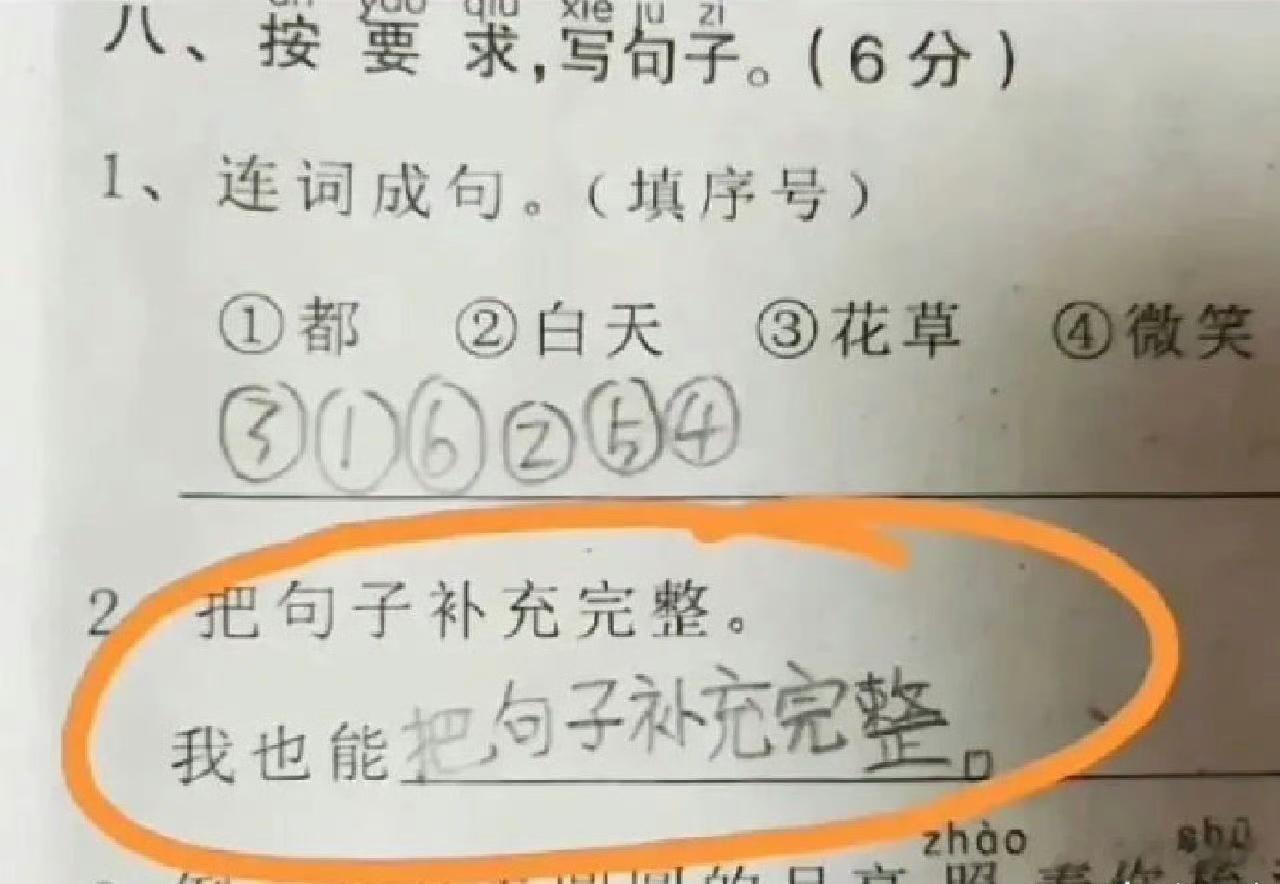 yāo qiú xiě jù zǐ
八、按要求,写句子。(6分)
1、连词成句。(填序号)
①都 ②白天 ③花草 ④微笑
③①⑥②⑤④
2 把句子补充完整。
我也能把句子补充完整。
zhào